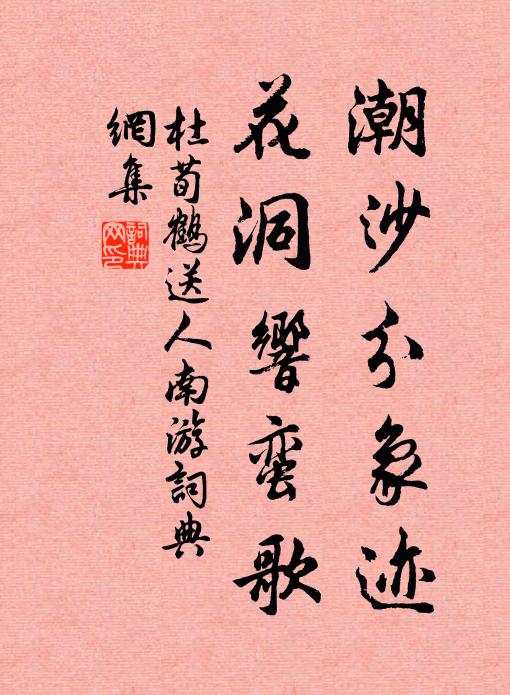 潮沙分象迹
花洞響蛮歌
杜荀鶴送人南游詞典
網集
詞典
网印